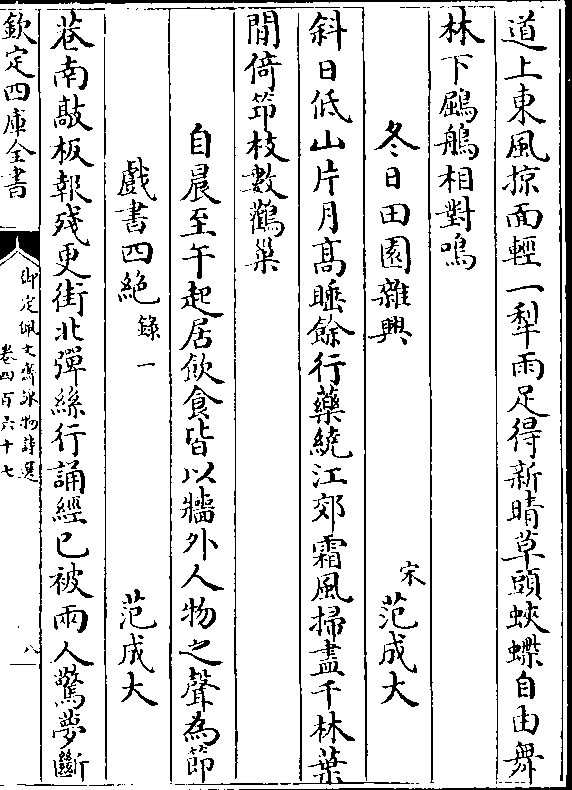 道上東風掠面輕一犁雨足得新晴草頭蛺蝶自由舞
林下鷗鵃相對鳴
冬日田園雜興
宋
范成大
斜日低山片月髙睡餘行藥繞江郊霜風掃盡千林葉
閒倚筇枝數鸛巢
自晨至午起居飲食皆以牆外人物之聲為節
戲書四絶 錄一
范成大
巷南敲板報殘更街北彈絲行誦經已被兩人驚夢斷
欽定四庫全書
御定佩文齋詠物詩選
卷四百六十七
八